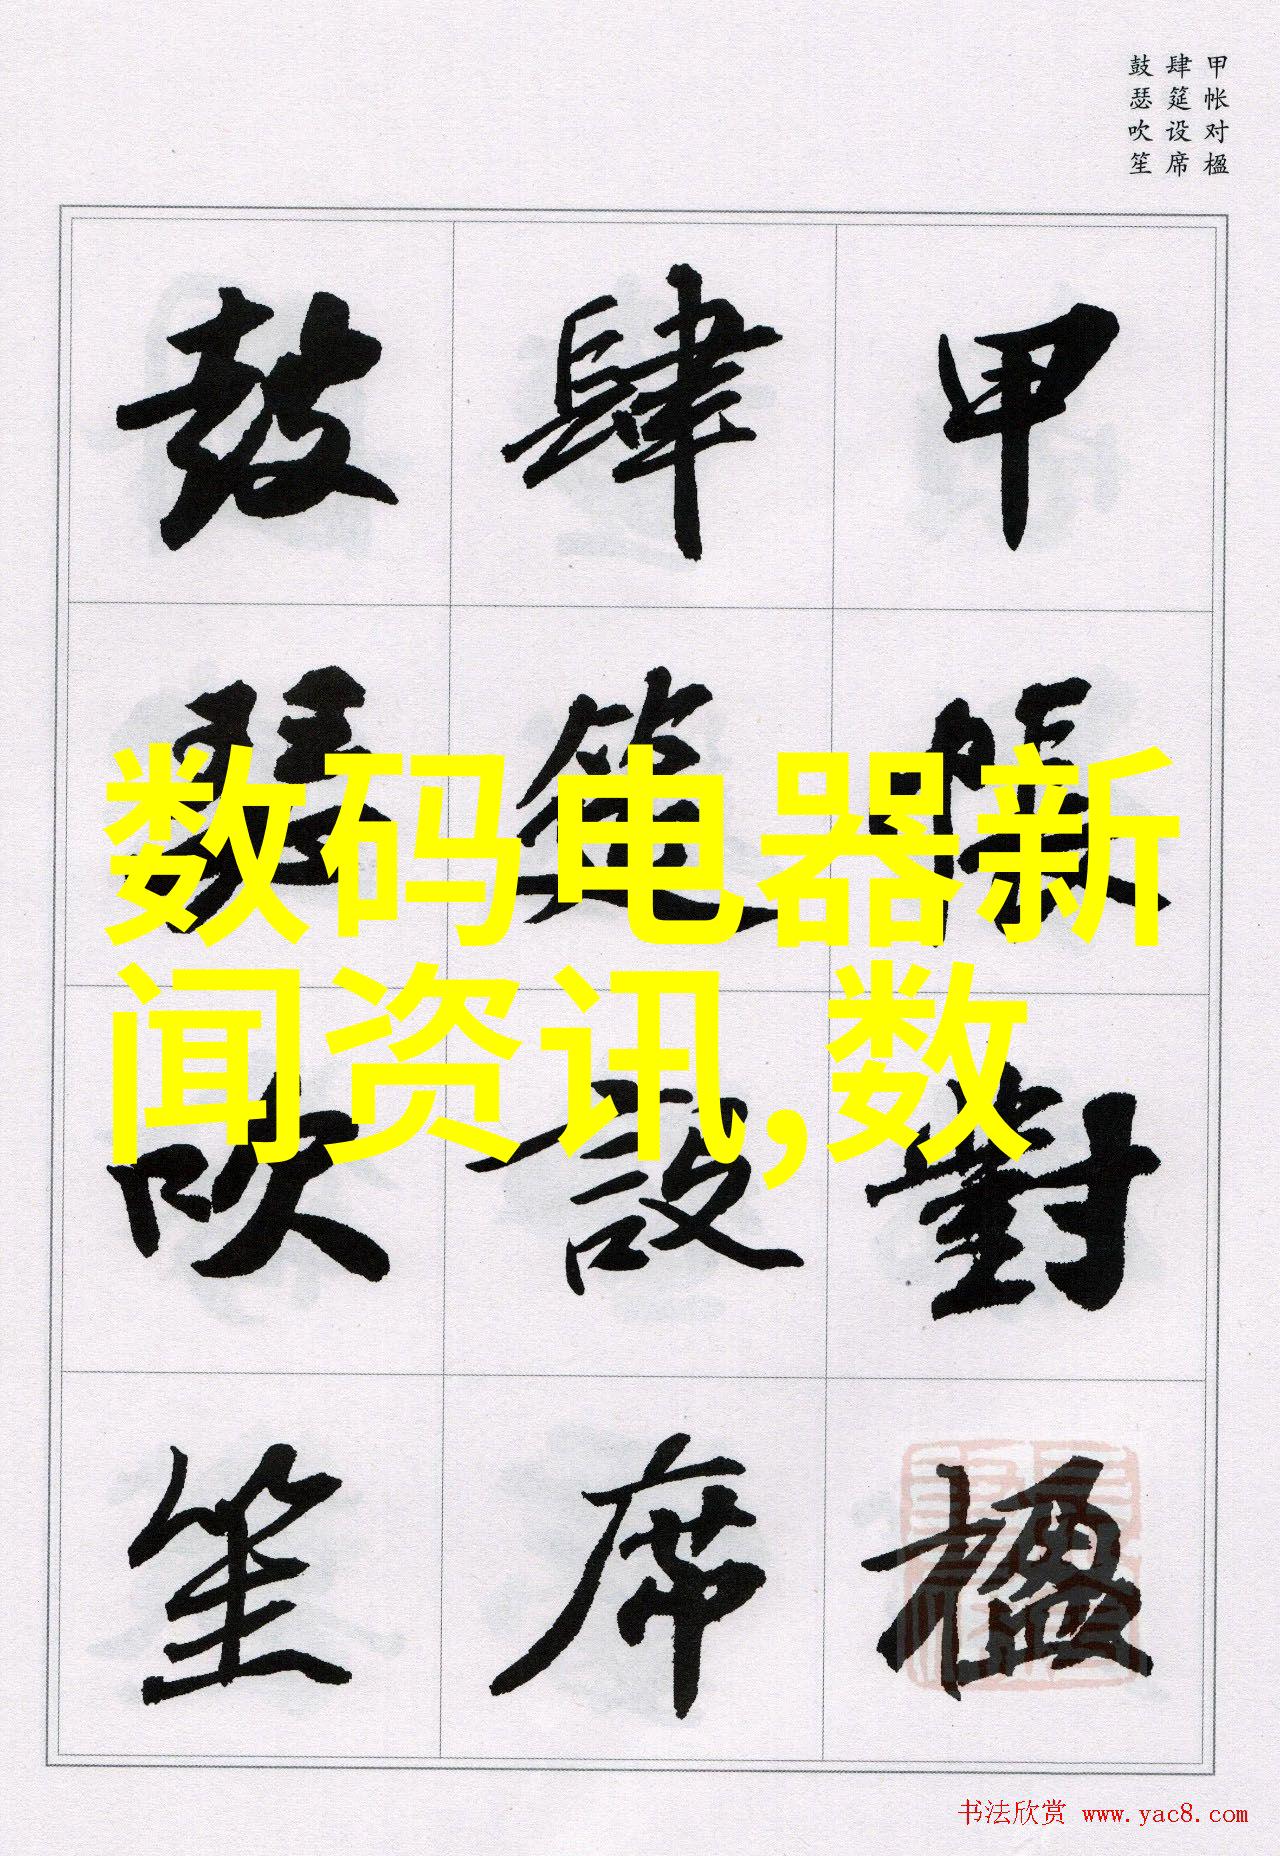 甲帐对楹
肆筵设席
鼓瑟吹笙
甲帳對楹
肆筵設席
鼓瑟吹笙
数码电器新
闻资讯,数
书法欣赏 www.yac8.com